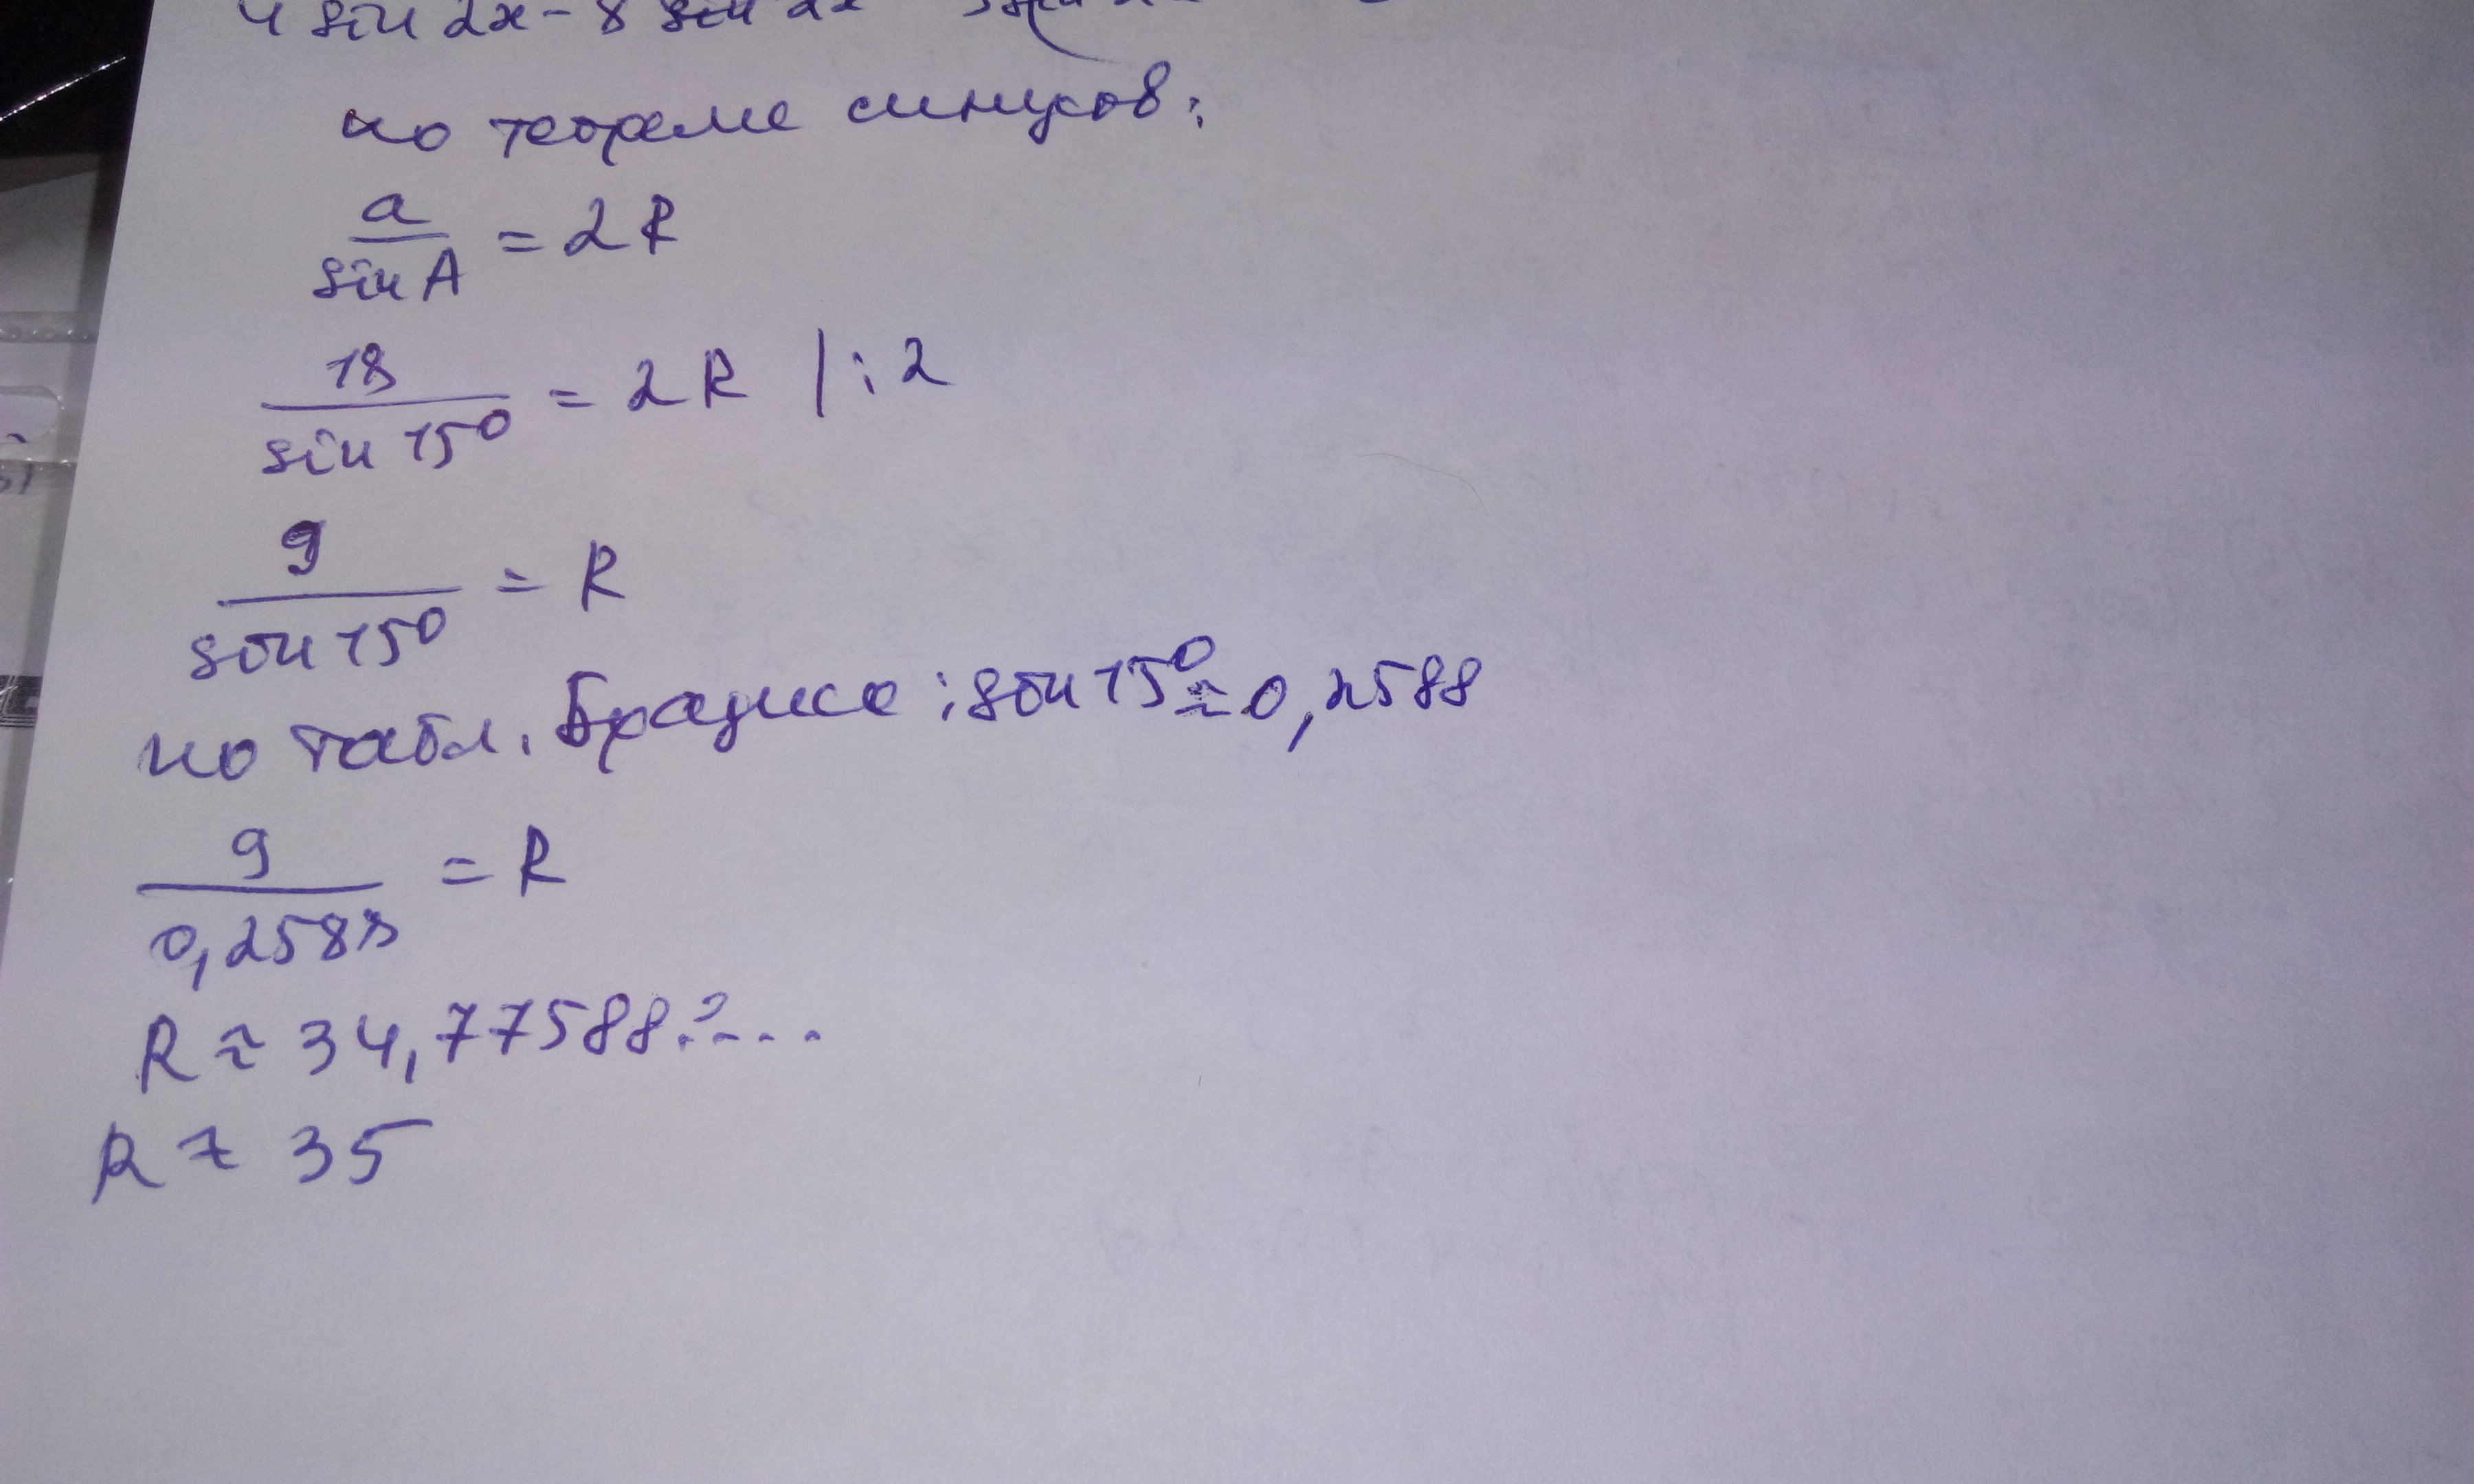 4 sin 2x - 8 sin 2x
по теореме синусов:
a/sin A = 2R
18/sin 15° = 2R | : 2
9/sin 15° = R
по табл. Брадиса : sin 15° ≈ 0,2588
9/0,2588 = R
R ≈ 34,77588....
R ≈ 35